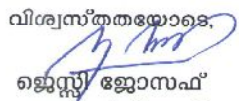 വിശ്വസ്തതയോടെ,
ജെസ്സി ജോസഫ്